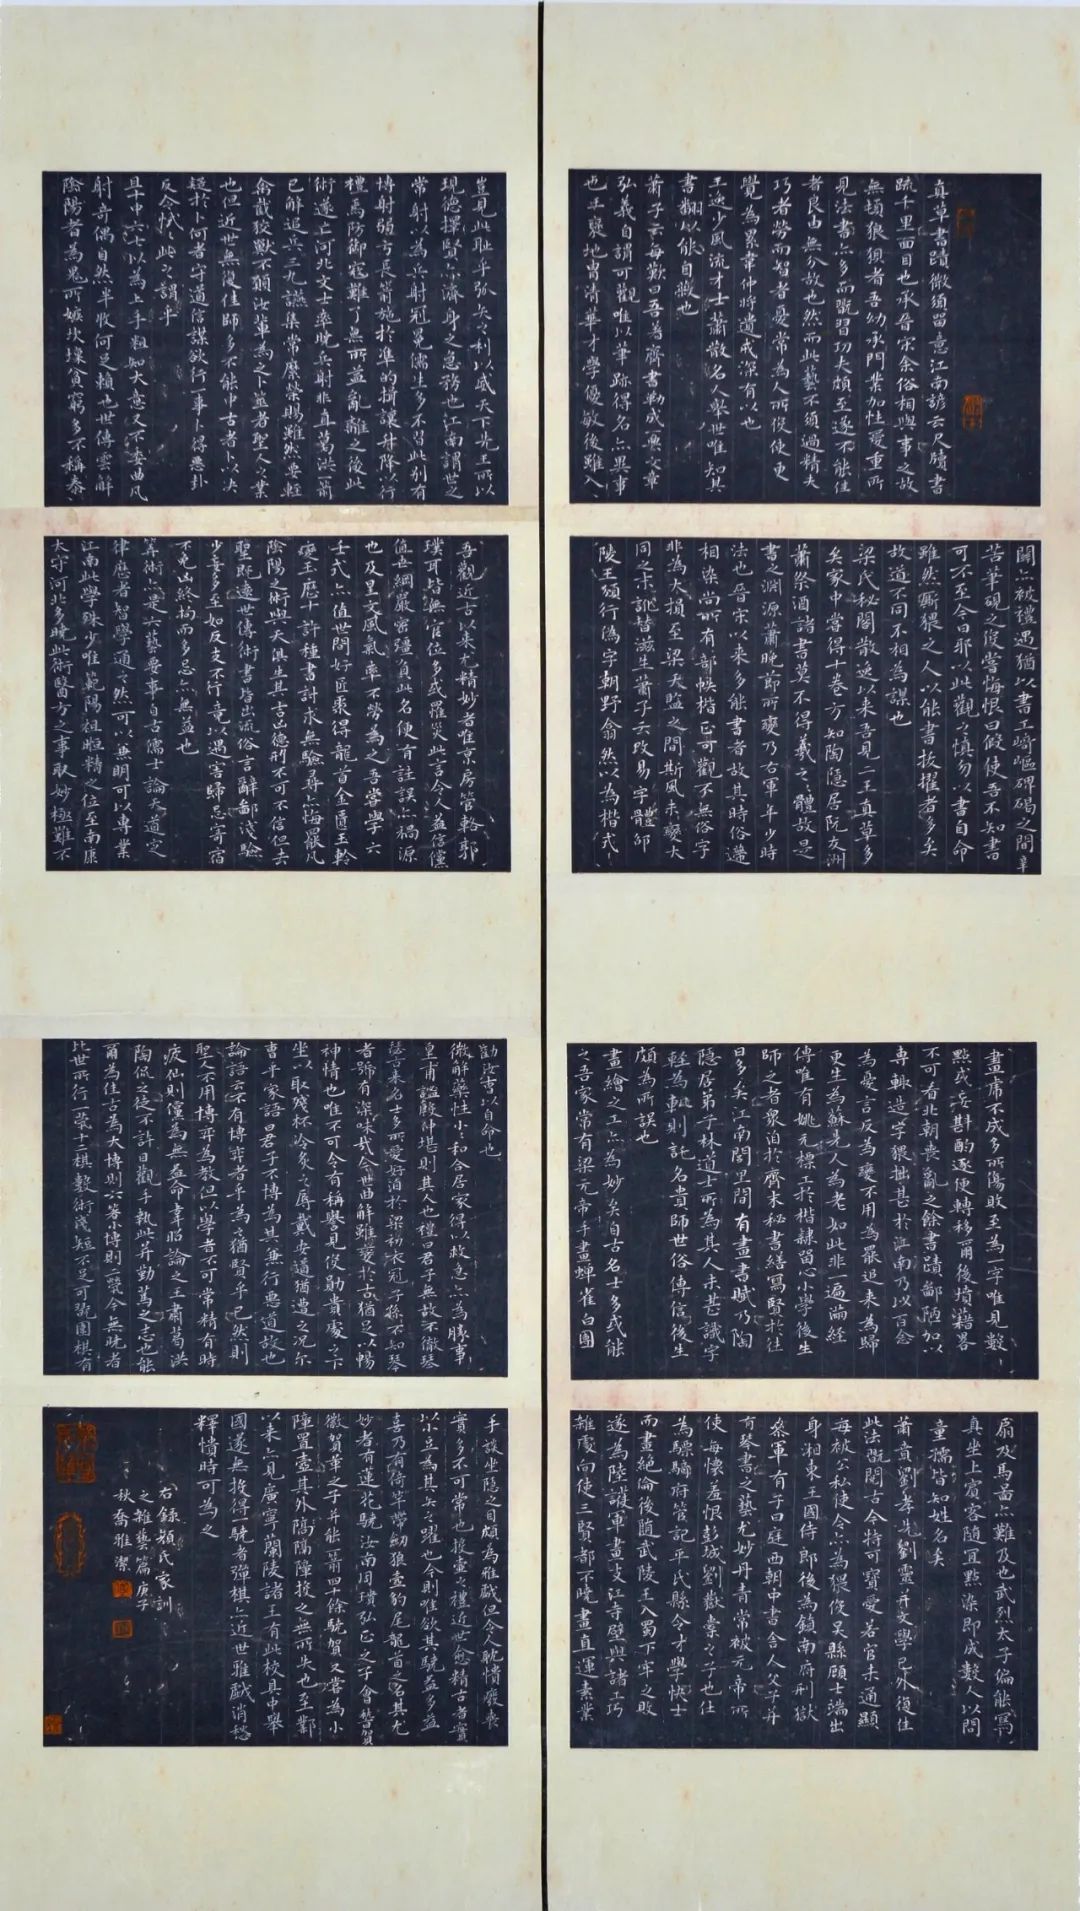 真草書蹟微須留意江南諺云尺牘書
疏千里面目也承晉宋余俗相與事之故
無頓狼狽者吾幼承門業加性愛重所
見法書亦多而翫習功夫頗至遂不能佳
者良由無分故也然而此藝不須過精夫
巧者勞而智者憂常為人所役使更
覺為累韋仲將遺戒深有以也
王逸少風流才士蕭散名人舉世唯知其
書翻以能自蔽也
蕭子云每歎曰吾著齊書勒成典文章
弘義自謂可觀唯以筆跡得名亦異事
也王褒地胄清華才學優敏後雖入
關亦被禮遇猶以書工崎嶇碑碣之間辛
苦筆硯之役嘗悔恨曰假使吾不知書
可不至今日耶以此觀之慎勿以書自命
雖然廝猥之人以能書拔擢者多矣
故道不同不相為謀也
梁氏秘閣散逸以來吾見二王真草多
矣家中嘗得十卷方知陶隱居阮交洲
蕭祭酒諸書莫不得羲之之體故是
書之淵源蕭晚節所變乃右軍年少時
法也晉宋以來多能書者故其時俗遞
相染尚所有部帙楷正可觀不無俗字
非為大損至梁天監之間斯風未變大
同之末訛替滋生蕭子云改易字體邵
陵王頗行偽字朝野翕然以為楷式
畫虎不成多所傷敗至為一字唯見數
點或妄斟酌遂便轉移爾後墳籍畧
不可看北朝喪亂之餘書蹟鄙陋加以
專輒造字猥拙甚於江南乃以百念
為憂言反為變不用為罷追來為歸
更生為蘇先人為老如此非一遍滿經
傳唯有姚元標工於楷隸留心小學後生
師之者眾洎於齊末秘書繕寫賢於往
日多矣江南閭里間有畫書賦乃陶
隱居弟子杜道士所為其人未甚識字
輕為軌則託名貴師世俗傳信後生
頗為所誤也
畫繪之工亦為妙矣自古名士多或能
之吾家常有梁元帝手畫蟬雀白團
扇及馬圖亦難及也武烈太子偏能寫
真坐上賓客隨宜點染即成數人以問
童孺皆知姓名矣
蕭賁劉孝先劉靈并文學已外復佳
此法翫閱古今特可寶愛若官未通顯
每被公私使令亦為猥役吳縣顧士端出
身湘東王國侍郎後為鎮南府刑獄
參軍有子曰庭西朝中書舍人父子并
有琴書之藝尤妙丹青常被元帝所
使每懷羞恨彭城劉歡橐之子也仕
為驃騎府管記平氏縣令才學快士
而畫絕倫後隨武陵王入蜀下牢之敗
遂為陸護軍畫支江寺壁與諸工巧
雜處向使三賢都不曉畫直運素業
豈見此恥乎弧矢之利以威天下先王所以
現德擇賢亦濟身之急務也江南謂世之
常射以為兵射冠冕儒生多不習此別有
博射弱弓長箭施於準的揖讓升降以行
禮焉防御寇難了無所益亂離之後此
術遂亡河北文士率曉兵射非直葛洪一箭
已解追兵三九讌集常縻榮賜雖然要輕
禽截狡獸不願汝輩為之卜筮者聖人之業
也但近世無復佳師多不能中古者卜以決
疑於卜何者守道信謀欲行一事卜得惡卦
反令恜恜此之謂乎
且十中六七以為上手粗知大意又不委曲凡
射奇偶自然半收何足賴也世傳雲解
陰陽者為鬼所嫉坎壈貧窮多不稱泰
吾觀近古以來尤精妙者唯京房管輅郭
璞耳皆無官位多或罹災此言令人益信儻
值世網嚴密強負此名便有詿誤亦禍源
也及星文風氣率不勞為之吾嘗學六
壬式亦值世間好匠聚得龍首金匱玉軨
變玉歷十許種書討求無驗尋亦悔罷凡
陰陽之術與天俱生其吉凶德刑不可不信但去
聖既遠世傳術書皆出流俗言辭鄙淺驗
少妄多至如反支不行竟以遇害歸忌寄宿
不免凶終拘而多忌亦無益也
筭術亦是六藝要事自古儒士論天道定
律歷者智學通之然可以兼明可以專業
江南此學殊少唯範陽祖暅精之位至南康
太守河北多曉此術醫方之事取妙極難不
勸汝曹以自命也
微解藥性小小和合居家得以救急亦為勝事
皇甫謐殷仲堪則其人也禮曰君子無故不徹琴
瑟古來名士多所愛好洎於梁初衣冠子孫不知琴
者號有闕味哉今世曲解雖變於古猶足以暢
神情也唯不可令有稱譽見役勛貴處之下
坐以取殘杯冷炙之辱戴安道猶遭之況尔
曹乎家語曰君子不博為其兼行惡道故也
論語云不有博弈者乎為之猶賢乎已然則
聖人不用博弈為教但以學者不可常精有時
疲倦則儻為無益命韋昭論之王肅葛洪
陶侃之徒不許目觀手執此并勤篤之志也能
爾為佳古為大博則六箸小博則二㷀今無曉者
比世所行一㷀十二棋數術淺短不足可翫圍棋有
手談坐隱之目頗為雅戲但令人耽憒廢喪
實多不可常也投壺之禮近世愈精古者實
以小豆為其矢之躍也今則唯欲其驍益多益
喜乃有倚竿帶劍狼壺豹尾龍首之名其尤
妙者有蓮花驍汝南周璝弘正之子會稽賀
徽賀革之子并能一箭四十餘驍賀又嘗為小
障置壺其外隔障投之無所失也至鄴
以來亦見廣寧蘭陵諸王有此校具中舉
國遂無投得一驍者彈棋亦近世雅戲消愁
釋憒時可為之
右錄顏氏家訓
之雜藝篇庚子
秋喬雅潔